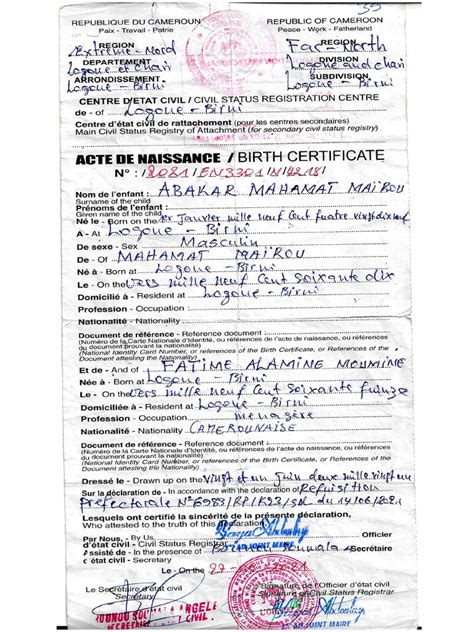 REPUBLIQUE DU CAMEROUN
Paix - Travail - Patrie
REPUBLIC OF CAMEROON
Peace - Work - Fatherland
REGION
Extrême-Nord
REGION
Far-North
DEPARTEMENT
Logone et Chari
DIVISION
Logone and chari
ARRONDISSEMENT
Logone-Birni
SUBDIVISION
Logone-Birni
CENTRE D'ETAT CIVIL / CIVIL STATUS REGISTRATION CENTRE
de - of Logone-Birni
Centre d'état civil de rattachement (pour les centres secondaires)
Main Civil Status Registry of Attachment (for secondary civil status registry)
ACTE DE NAISSANCE / BIRTH CERTIFICATE
N° : /2021/EN3301/N/4218/
Nom de l'enfant : ABAKAR MAHAMAT MAÏROU
Surname of the child
Prénoms de l'enfant :
Given name of the child
Né le - Born on the 1er Janvier mille neuf Cent quatre vingt dix neuf
A - At Logone-Birni
De sexe - Sex Masculin
De - Of MAHAMAT MAÏROU
Né à - Born at Logone-Birni
Le - On the Vers mille neuf Cent Soixante dix
Domicilié à - Resident at Logone-Birni
Profession - Occupation :
Nationalité - Nationality
Document de référence - Reference document :
(Numéro de la Carte Nationale d'Identité, ou références de l'acte de naissance, ou références du document prouvant la nationalité)
(National Identity Card Number, or references of the Birth Certificate, or References of the Document attesting the Nationality)
Et de - And of FATIME ALAMINE MOUMINE
Née à - Born at Logone-Birni
Le - On the Vers mille neuf Cent Soixante quinze
Domiciliée à - Resident at Logone-Birni
Profession - Occupation ménagère
Nationalité - Nationality CAMEROUNAISE
Document de référence - Reference document :
(Numéro de la Carte Nationale d'Identité, ou références de l'acte de naissance, ou références du document prouvant la nationalité)
(National Identity Card Number, or references of the Birth Certificate, or References of the Document attesting the Nationality)
Dressé le - Drawn up on the Vingt et un juin deux mille vingt un
Sur la déclaration de - In accordance with the declaration of Réquisition
préfectorale du 14/06/2021
Lesquels ont certifié la sincérité de la présente déclaration.
Who attested to the truth of this Declaration
Par Nous, - By Us Officier
ADJOINT MAIRE
d'état civil - Civil Status Registrar
Assisté de - In the presence of Secrétaire
d'état civil
Le - On the
Le Secrétaire d'état civil
Secretary
Signature de l'Officier d'état civil
Civil Status Registrar
ADJOINT MAIRE